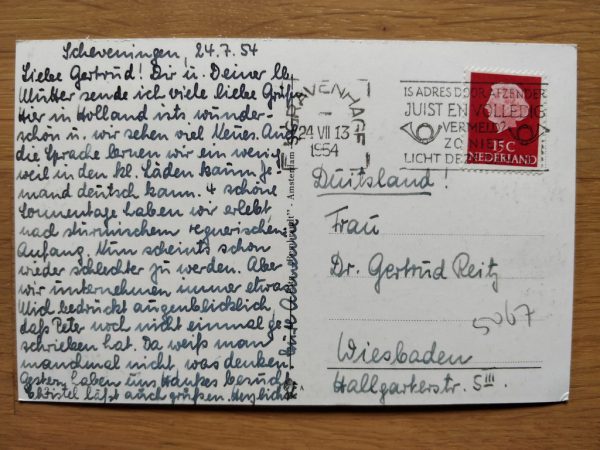 Scheveningen, 24.7.54
Liebe Gertrud! Dir u. Deiner lb.
Mutter sende ich viele liebe Grüße
Hier in Holland ists wunder-
schön u. wir sehen viel Neues. Auch
die Sprache lernen wir ein wenig
weil in den kl. Läden kaum je-
mand deutsch kann. 4 schöne
Sonnentage haben wir erlebt
nach stürmischem regnerischem
Anfang. Nun scheints schon
wieder schlechter zu werden. Aber
wir unternehmen immer etwas
Mich bedrückt augenblicklich,
daß Peter noch nicht einmal ge-
schrieben hat. Da weiß man
manchmal nicht, was denken.
Gestern haben uns besucht
Christel läßt auch grüßen. Herzlichst
Amsterdam
'S GRAVENHAGE
24 VII 13
1954
IS ADRES DOOR AFZENDER
JUIST EN VOLLEDIG
VERMELD?
ZO NIET
LICHT DEZE
15 C
NEDERLAND
Duitsland!
Frau
Dr. Gertrud Reitz
5067
Wiesbaden
Hallgarterstr. 5 III.